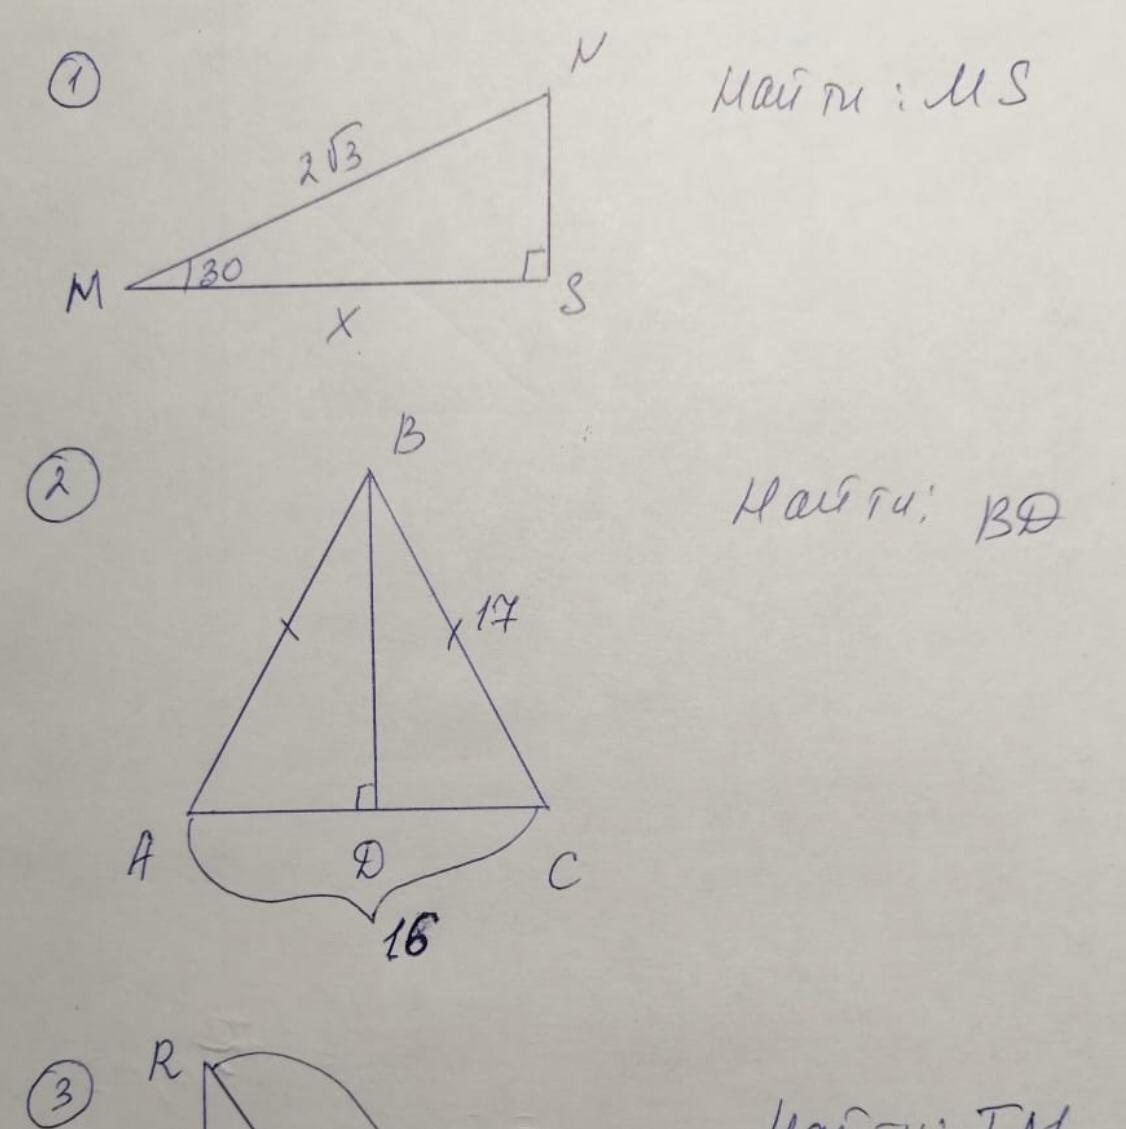 1
N
Найти: MS
2√3
M
30
S
X
B
2
Найти: BD
17
A
D
C
16
R
3
Найти: